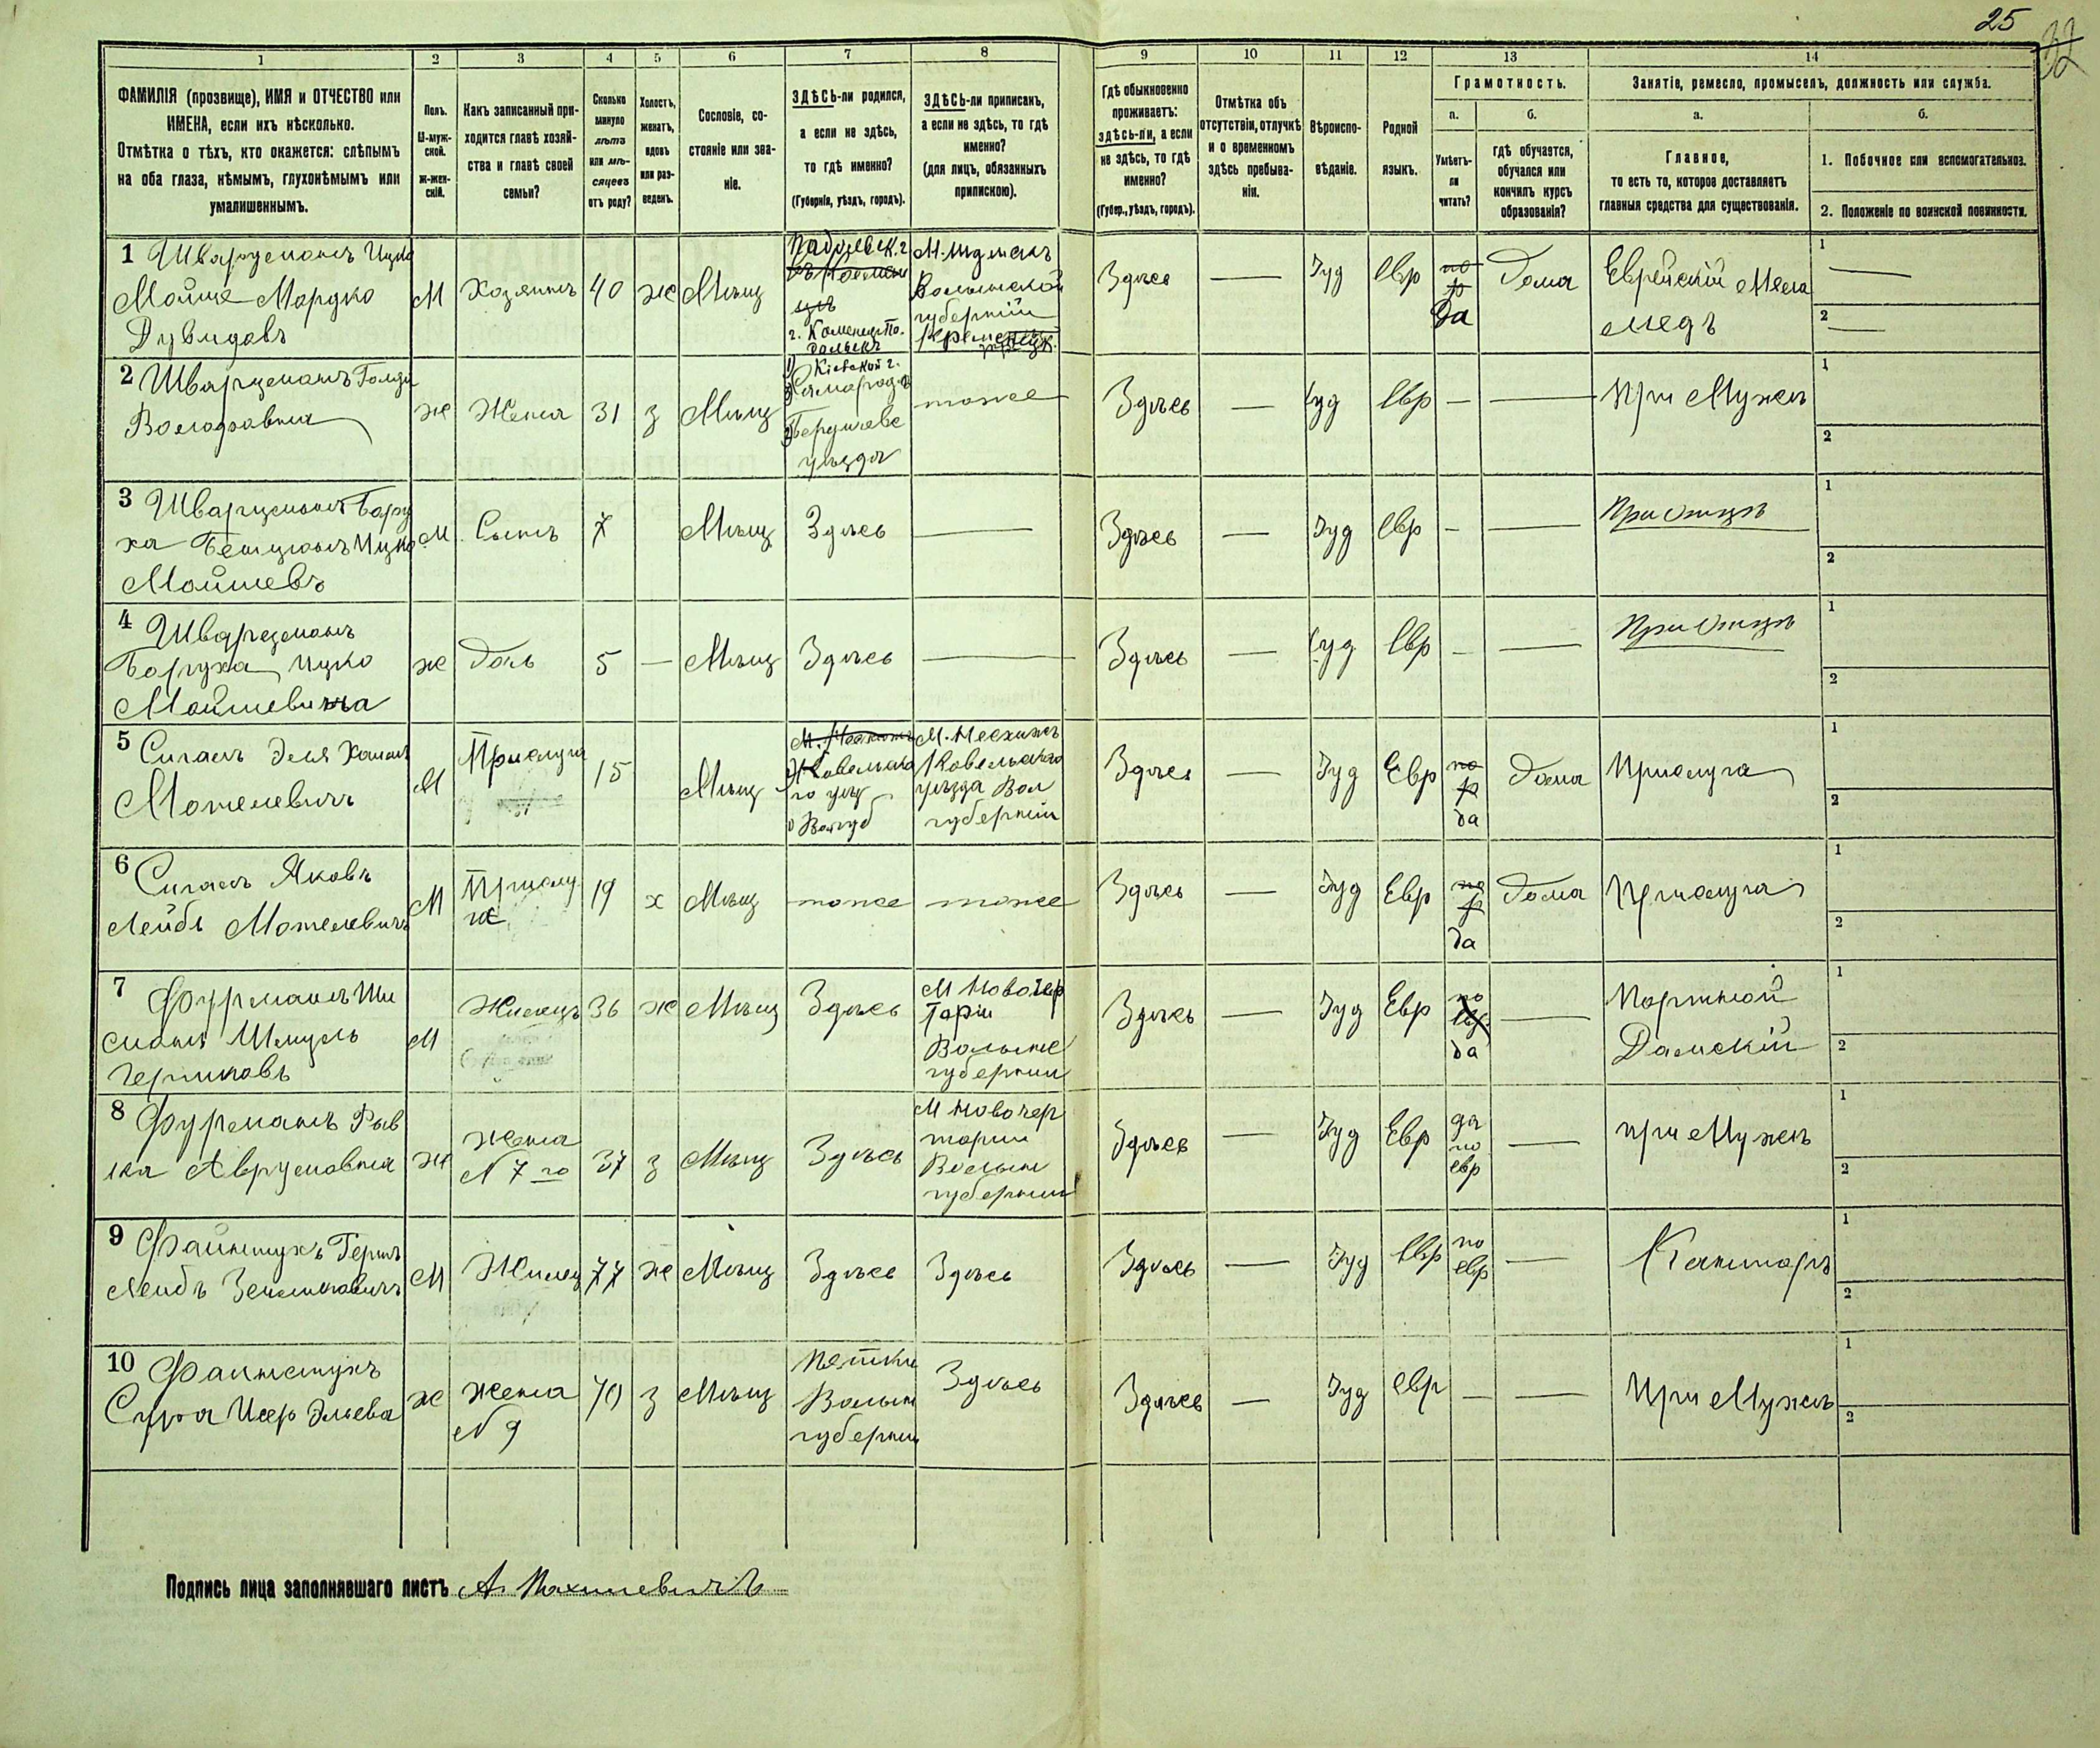 25
32
1 2 3 4 5 6 7 8 9 10 11 12 13 14
ФАМИЛІЯ (прозвище), ИМЯ и ОТЧЕСТВО или
ИМЕНА, если ихъ нѣсколько.
Отмѣтка о тѣхъ, кто окажется: слѣпымъ
на оба глаза, нѣмымъ, глухонѣмымъ или
умалишеннымъ.
Полъ.
М-муж-
ской.
ж-жен-
скій.
Какъ записанный при-
ходится главѣ хозяй-
ства и главѣ своей
семьи?
Сколько
минуло
лѣтъ
или мѣ-
сяцевъ
отъ роду?
Холостъ,
женатъ,
вдовъ
или раз-
веденъ.
Сословіе, со-
стояніе или зва-
ніе.
ЗДѢСЬ-ли родился,
а если не здѣсь,
то гдѣ именно?
(Губернія, уѣздъ, городъ).
ЗДѢСЬ-ли приписанъ,
а если не здѣсь, то гдѣ
именно?
(для лицъ, обязанныхъ
припискою).
Гдѣ обыкновенно
проживаетъ:
здѣсь-ли, а если
не здѣсь, то гдѣ
именно?
(Губер., уѣздъ, городъ).
Отмѣтка объ
отсутствіи, отлучкѣ
и о временномъ
здѣсь пребыва-
ніи.
Вѣроиспо-
вѣданіе.
Родной
языкъ.
Грамотность.
а.
Умѣетъ-
ли
читать?
б.
гдѣ обучается,
обучался или
кончилъ курсъ
образованія?
Занятіе, ремесло, промыселъ, должность или служба.
а.
Главное,
то есть то, которое доставляетъ
главныя средства для существованія.
б.
1. Побочное или вспомогательное.
2. Положеніе по воинской повинности.
1 Шварцманъ Ицко
Мойше Мордко
Дувидовъ
М
Хозяинъ
40
ж
Мѣщ
Подольск. г.
г. Каменец По-
дольскъ
М. Шумскъ
Волынской
губерніи
Кременецк.
Здѣсь
—
Іуд
Евр
да
Дома
Еврейскій Мела
медъ
1 —
2 —
2 Шварцманъ Голда
ж
Жена
31
з
Мѣщ
Кіевской г.
уѣзда
тоже
Здѣсь
—
Іуд
Евр
—
—
При Мужѣ
1
2
3 Шварцманъ Бору
Ицко
Мойшевъ
М
Сынъ
7
Мѣщ
Здѣсь
—
Здѣсь
—
Іуд
Евр
—
—
При Отцѣ
1
2
4 Шварцманъ
Боруха Ицко
Мойшевича
ж
Дочь
5
—
Мѣщ
Здѣсь
—
Здѣсь
—
Іуд
Евр
—
—
При Отцѣ
1
2
5 Сигалъ Эля
Мотелевичъ
М
Прислуга
15
Мѣщ
Ковельска
го уѣз
Вол губ
М. Несхижъ
Ковельскаго
уѣзда Вол
губерніи
Здѣсь
—
Іуд
Евр
да
Дома
Прислуга
1
2
6 Сигалъ Яковъ
Лейбъ Мотелевичъ
М
Прислу
га
19
х
Мѣщ
тоже
тоже
Здѣсь
—
Іуд
Евр
да
Дома
Прислуга
1
2
7 Фурманъ Ши
Шмуль
Гершковъ
М
Жилецъ
36
ж
Мѣщ
Здѣсь
М Новочер
торіи
Волынс
губерніи
Здѣсь
—
Іуд
Евр
да
—
Портной
Дамскій
1
2
8 Фурманъ Рив
ка Аврумовна
ж
Жена
N 7 го
37
з
Мѣщ
Здѣсь
М Новочер
торіи
Волын
губерніи
Здѣсь
—
Іуд
Евр
да
по
евр
—
при Мужѣ
1
2
9 Файнштухъ Герш
Лейбъ
М
Жилец
77
ж
Мѣщ
Здѣсь
Здѣсь
Здѣсь
—
Іуд
Евр
по
евр
—
Канторъ
1
2
10
Сура
ж
жена
N 9
70
з
Мѣщ
Волын
губерніи
Здѣсь
Здѣсь
—
Іуд
Евр
—
—
При Мужѣ
1
2
Подпись лица заполнявшаго листъ А.